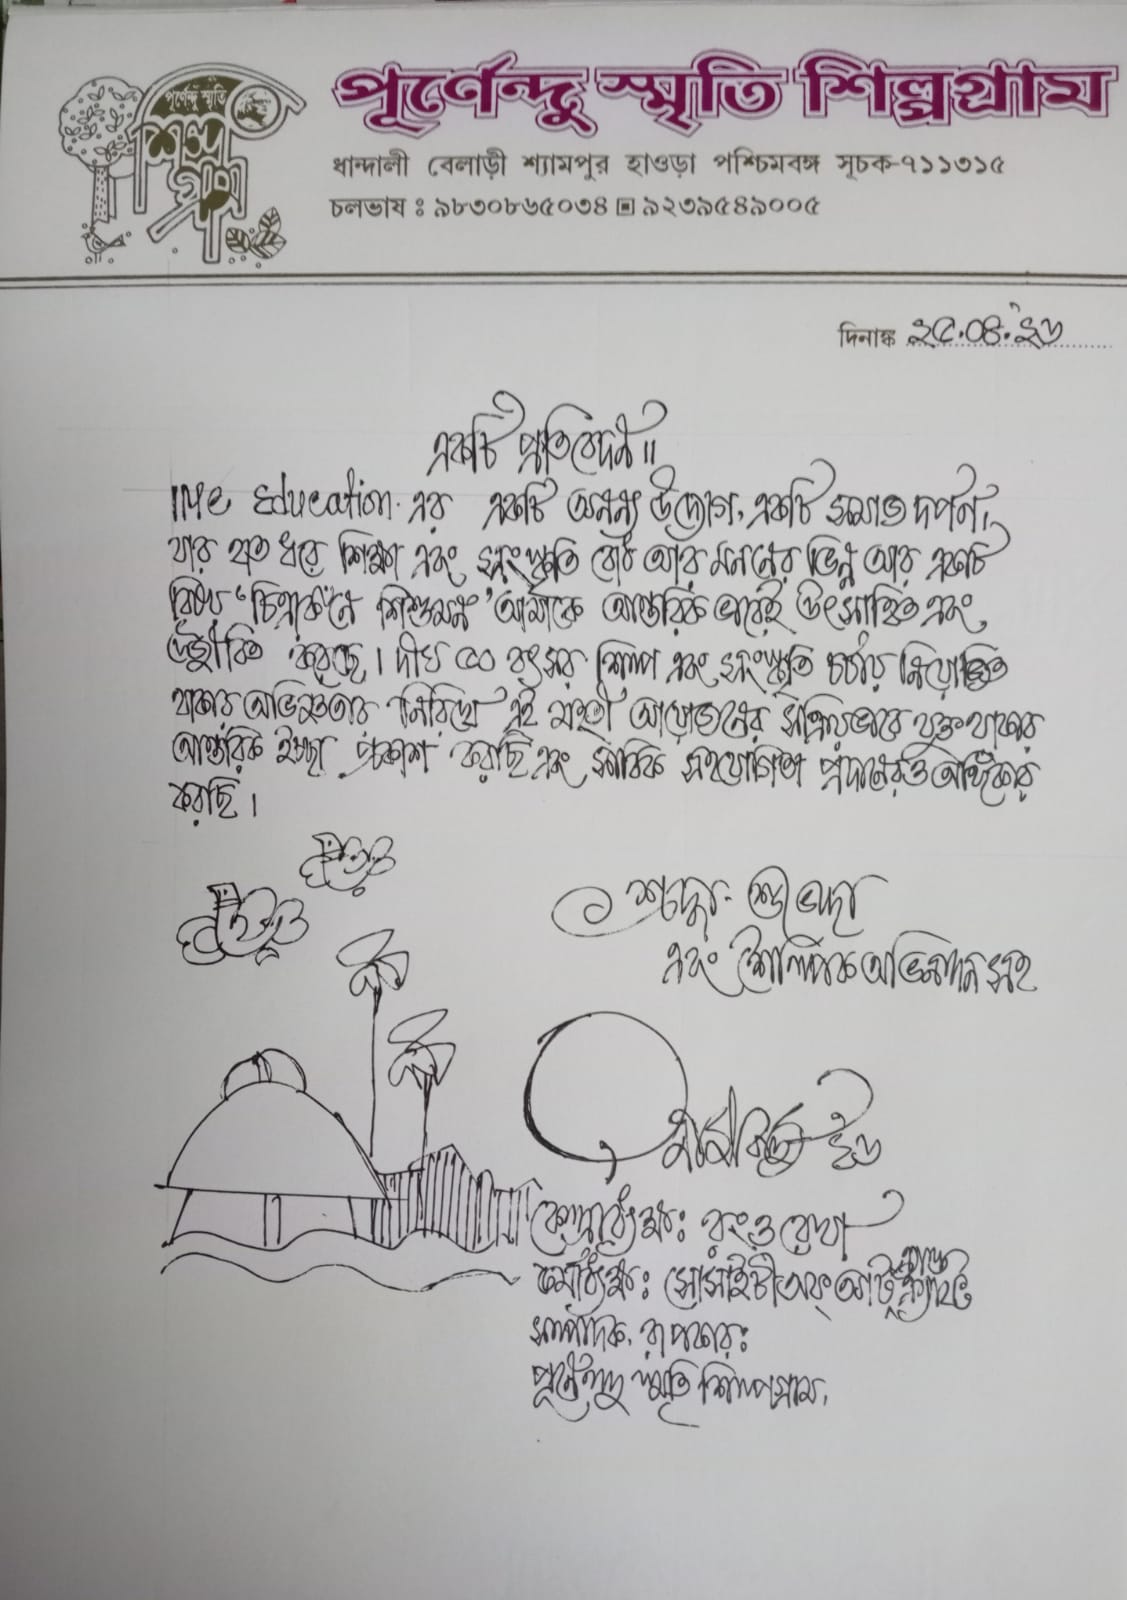 পূর্ণেন্দু স্মৃতি
শিল্প
গ্রাম
পূর্ণেন্দু স্মৃতি শিল্পগ্রাম
ধান্দালী বেলাড়ী শ্যামপুর হাওড়া পশ্চিমবঙ্গ সূচক-৭১১৩১৫
চলভাষ : ৯৮৩০৮৬৫০৩৪ ▣ ৯২৩৯৫৪৯০০৫
দিনাঙ্ক ২৫.০৪.'২৬
একটি প্রতিবেদন॥
Education. এর একটি অনন্য উদ্যোগ, একটি সমাজ দর্পন,
যার হাত ধরে শিক্ষা এবং সংস্কৃতি বোধ আর মননের ভিন্ন আর একটি
বিষয় "চিত্রাঙ্কনে শিশুমন" আমাকে আন্তরিক ভাবেই উৎসাহিত এবং
উজ্জীবিত করেছে। দীর্ঘ ৫০ বৎসর শিল্প এবং সংস্কৃতি চর্চায় নিয়োজিত
থাকার অভিজ্ঞতার নিরিখে এই মহতী আয়োজনের সক্রিয়ভাবে যুক্ত থাকার
আন্তরিক ইচ্ছা প্রকাশ করছি এবং সার্বিক সহযোগিতা প্রদানেরও অঙ্গিকার
করছি।
শ্রদ্ধা-
এবং শৈল্পিক অভিনন্দন সহ
২৬
কোষাধ্যক্ষ: রং ও রেখা
কর্মাধ্যক্ষ: সোসাইটী অফ্ আর্ট এ্যান্ড ক্র্যাফট
সম্পাদক, রূপকার:
পূর্ণেন্দু স্মৃতি শিল্পগ্রাম,